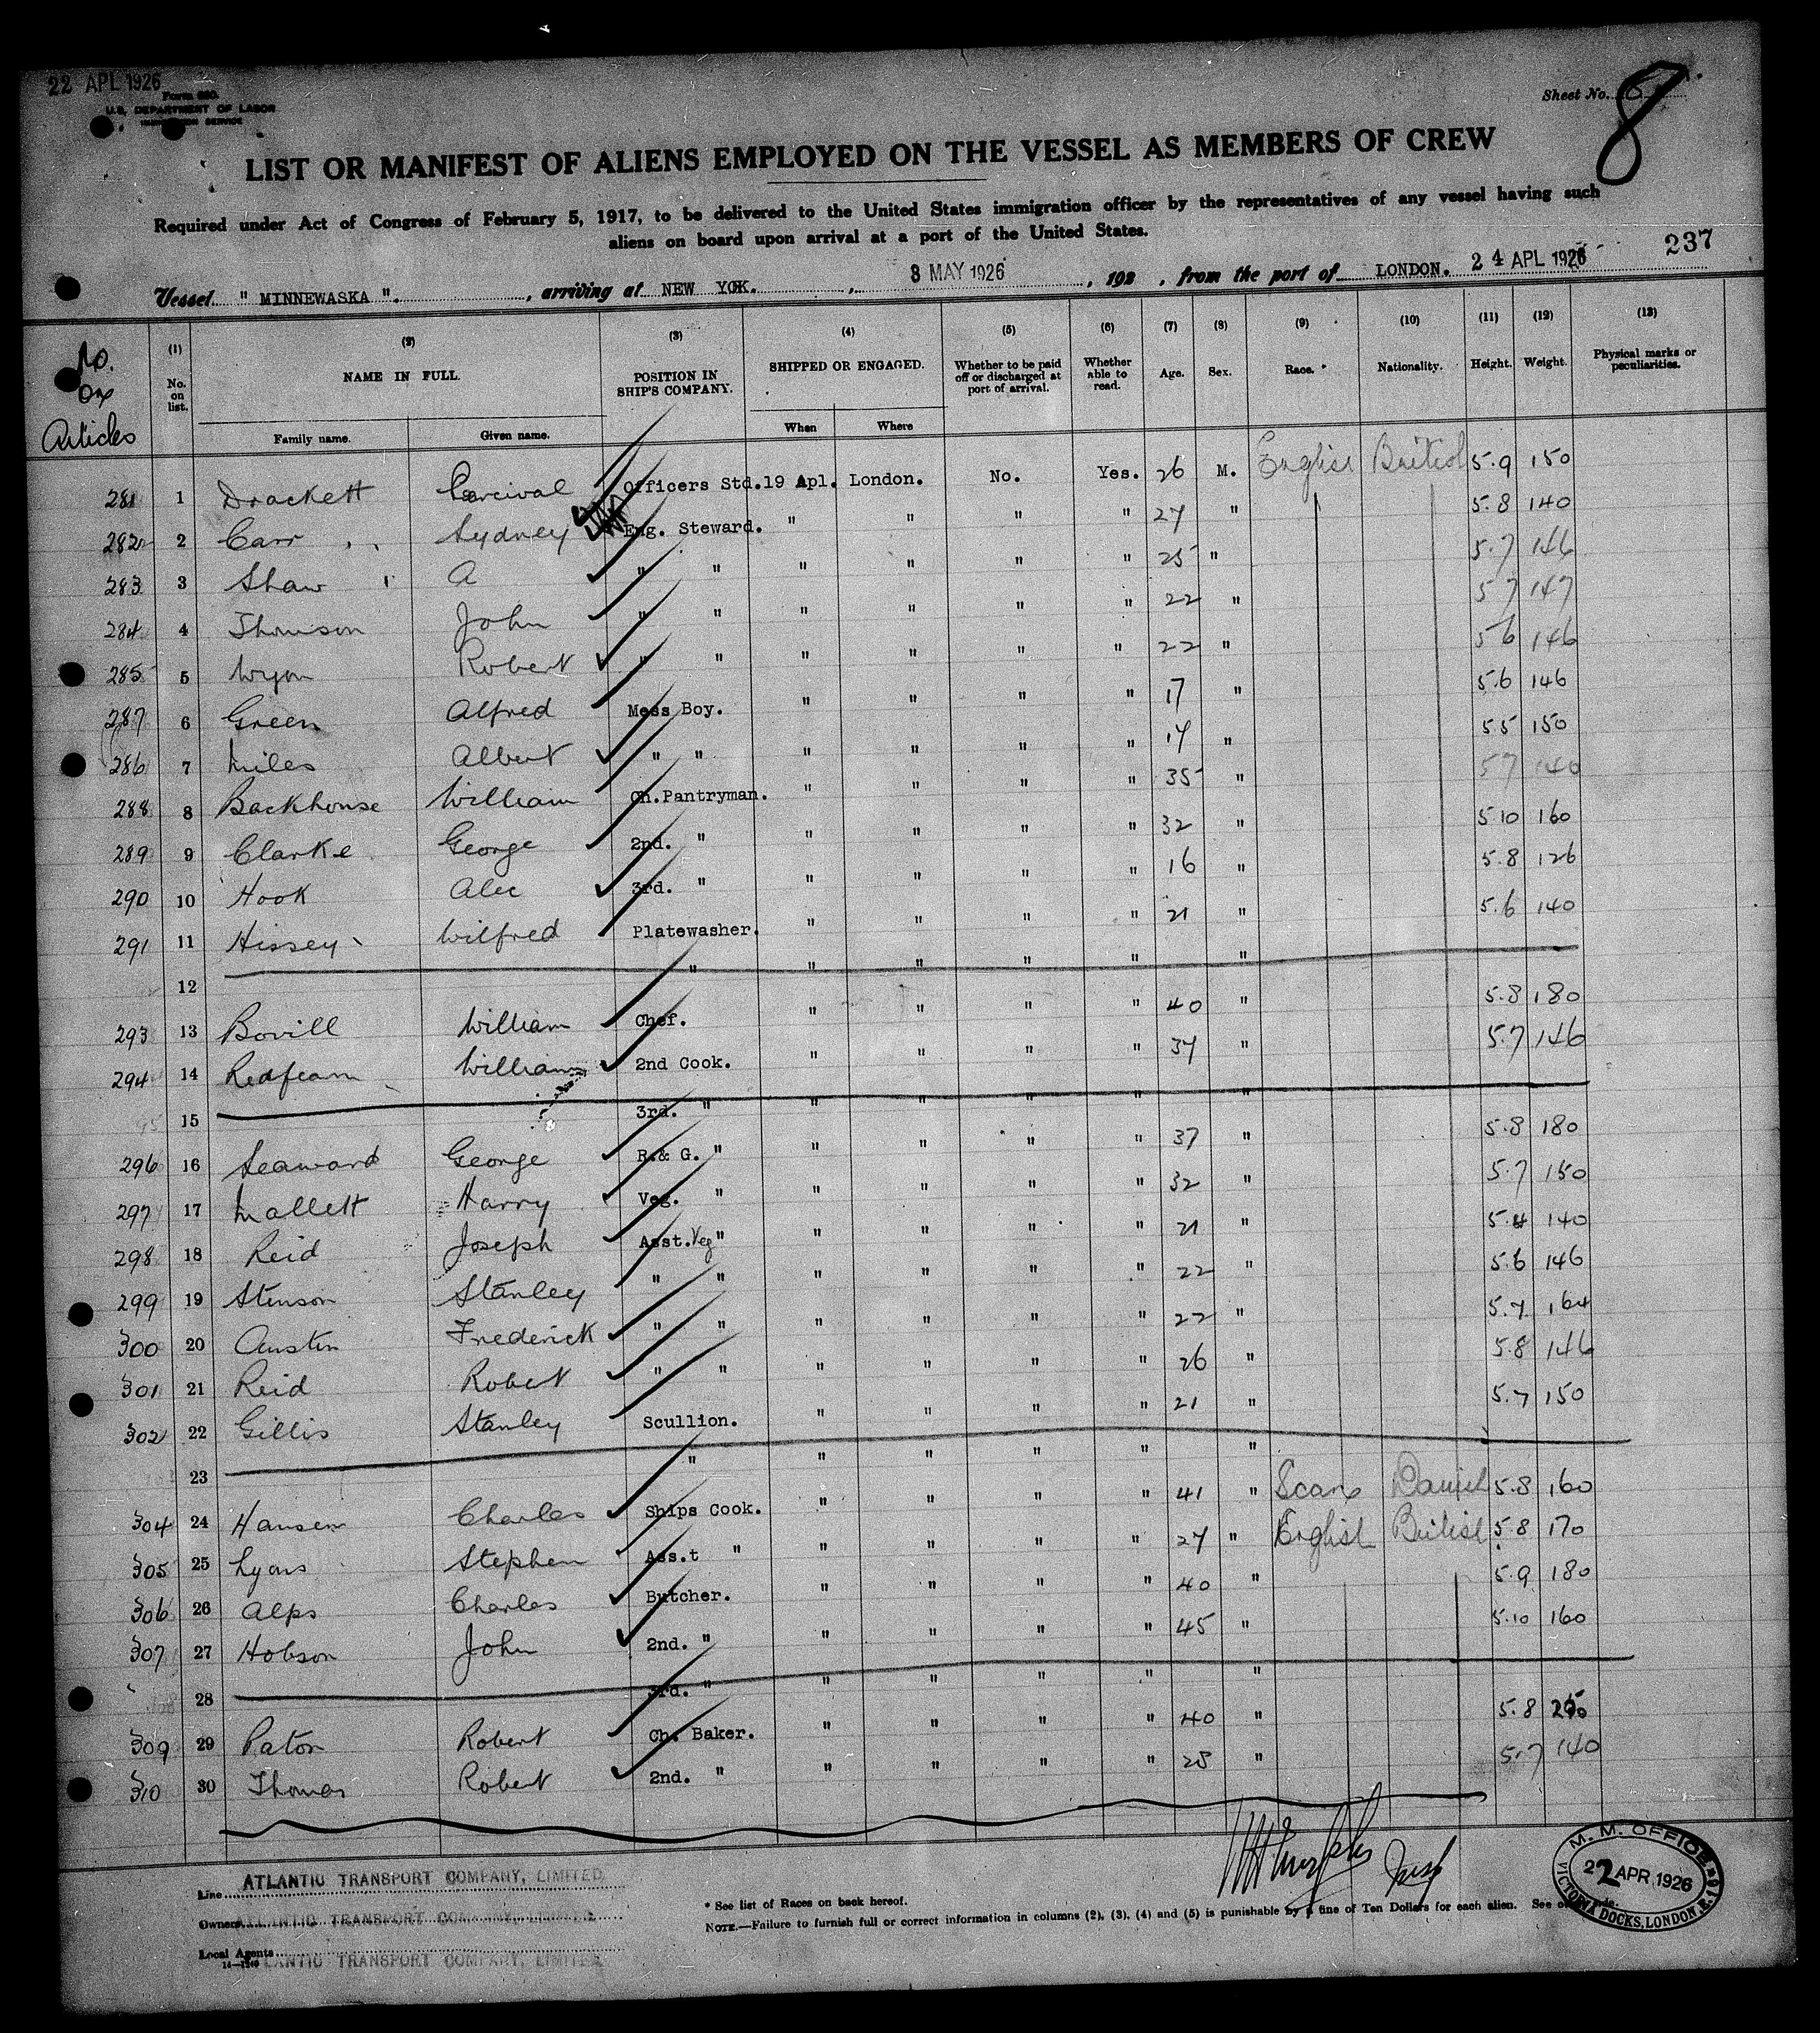 22 APL 1926
Form 680.
U.S. DEPARTMENT OF LABOR
IMMIGRATION SERVICE
Sheet No. 8
8
LIST OR MANIFEST OF ALIENS EMPLOYED ON THE VESSEL AS MEMBERS OF CREW
Required under Act of Congress of February 5, 1917, to be delivered to the United States immigration officer by the representatives of any vessel having such
aliens on board upon arrival at a port of the United States.
237
Vessel " MINNEWASKA ". , arriving at NEW YOK. , 3 MAY 1926 , 192 , from the port of LONDON. 24 APL 1926
No. on Articles (1) No. on list. (2) NAME IN FULL. (3) POSITION IN SHIP'S COMPANY. (4) SHIPPED OR ENGAGED. (5) Whether to be paid off or discharged at port of arrival. (6) Whether able to read. (7) Age. (8) Sex. (9) Race.* (10) Nationality. (11) Height. (12) Weight. (13) Physical marks or peculiarities.
Family name. Given name. When Where
281 1 Drackett Percival Officers Std. 19 Apl. London. No. Yes. 26 M. English British 5.9 150
282 2 Carr Sydney Eng. Steward. " " " " 27 " 5.8 140
283 3 Shaw A " " " " " " 25 " 5.7 146
284 4 Thomson John " " " " " " 22 " 5 7 147
285 5 Wyon Robert " " " " " " 22 " 5 6 146
287 6 Green Alfred Mess Boy. " " " " 17 " 5.6 146
286 7 Miles Albert " " " " " " 17 " 5 5 150
288 8 Backhouse William Ch.Pantryman. " " " " 35 " 5 7 140
289 9 Clarke George 2nd. " " " " " 32 " 5 10 160
290 10 Hook Alec 3rd. " " " " " 16 " 5.8 126
291 11 Hissey Wilfred Platewasher. " " " " 21 " 5.6 140
12 " " " " " "
293 13 Bovill William Chef. " " " " 40 " 5.8 180
294 14 Redfearn William 2nd Cook. " " " " 37 " 5.7 146
95 15 3rd. " " " " " "
296 16 Seaward George R.& G. " " " " " 37 " 5.8 180
297 17 Mallett Harry Veg. " " " " " 32 " 5.7 150
298 18 Reid Joseph Asst.Veg " " " " " 21 " 5.4 140
299 19 Stenson Stanley " " " " " " 22 " 5.6 146
300 20 Austin Frederick " " " " " " 22 " 5.7 164
301 21 Reid Robert " " " " " " 26 " 5.8 146
302 22 Gillis Stanley Scullion. " " " " 21 " 5.7 150
23 " " " " " "
304 24 Hansen Charles Ships Cook. " " " " 41 " Scan Danish 5.8 160
305 25 Lyons Stephen Ass.t " " " " " 27 " English British 5 8 170
306 26 Alps Charles Butcher. " " " " 40 " 5.9 180
307 27 Hobson John 2nd. " " " " " 45 " 5.10 160
28 3rd. " " " " " "
309 29 Paton Robert Ch. Baker. " " " " 40 " 5.8
310 30 Thomas Robert 2nd. " " " " " 28 " 5.7 140
Line ATLANTIC TRANSPORT COMPANY, LIMITED.
Owners ATLANTIC TRANSPORT COMPANY, LIMITED.
Local Agents ATLANTIC TRANSPORT COMPANY, LIMITED.
14—1240
* See list of Races on back hereof.
NOTE.—Failure to furnish full or correct information in columns (2), (3), (4) and (5) is punishable by a fine of Ten Dollars for each alien. See
M. M. OFFICE
22 APR 1926
VICTORIA DOCKS, LONDON, E.16